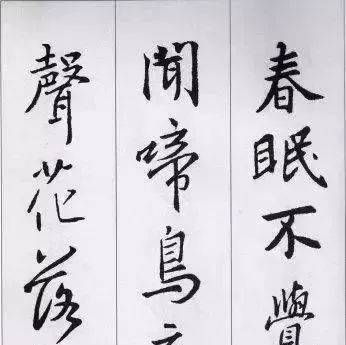 春眠不覺
聞啼鳥
聲花落